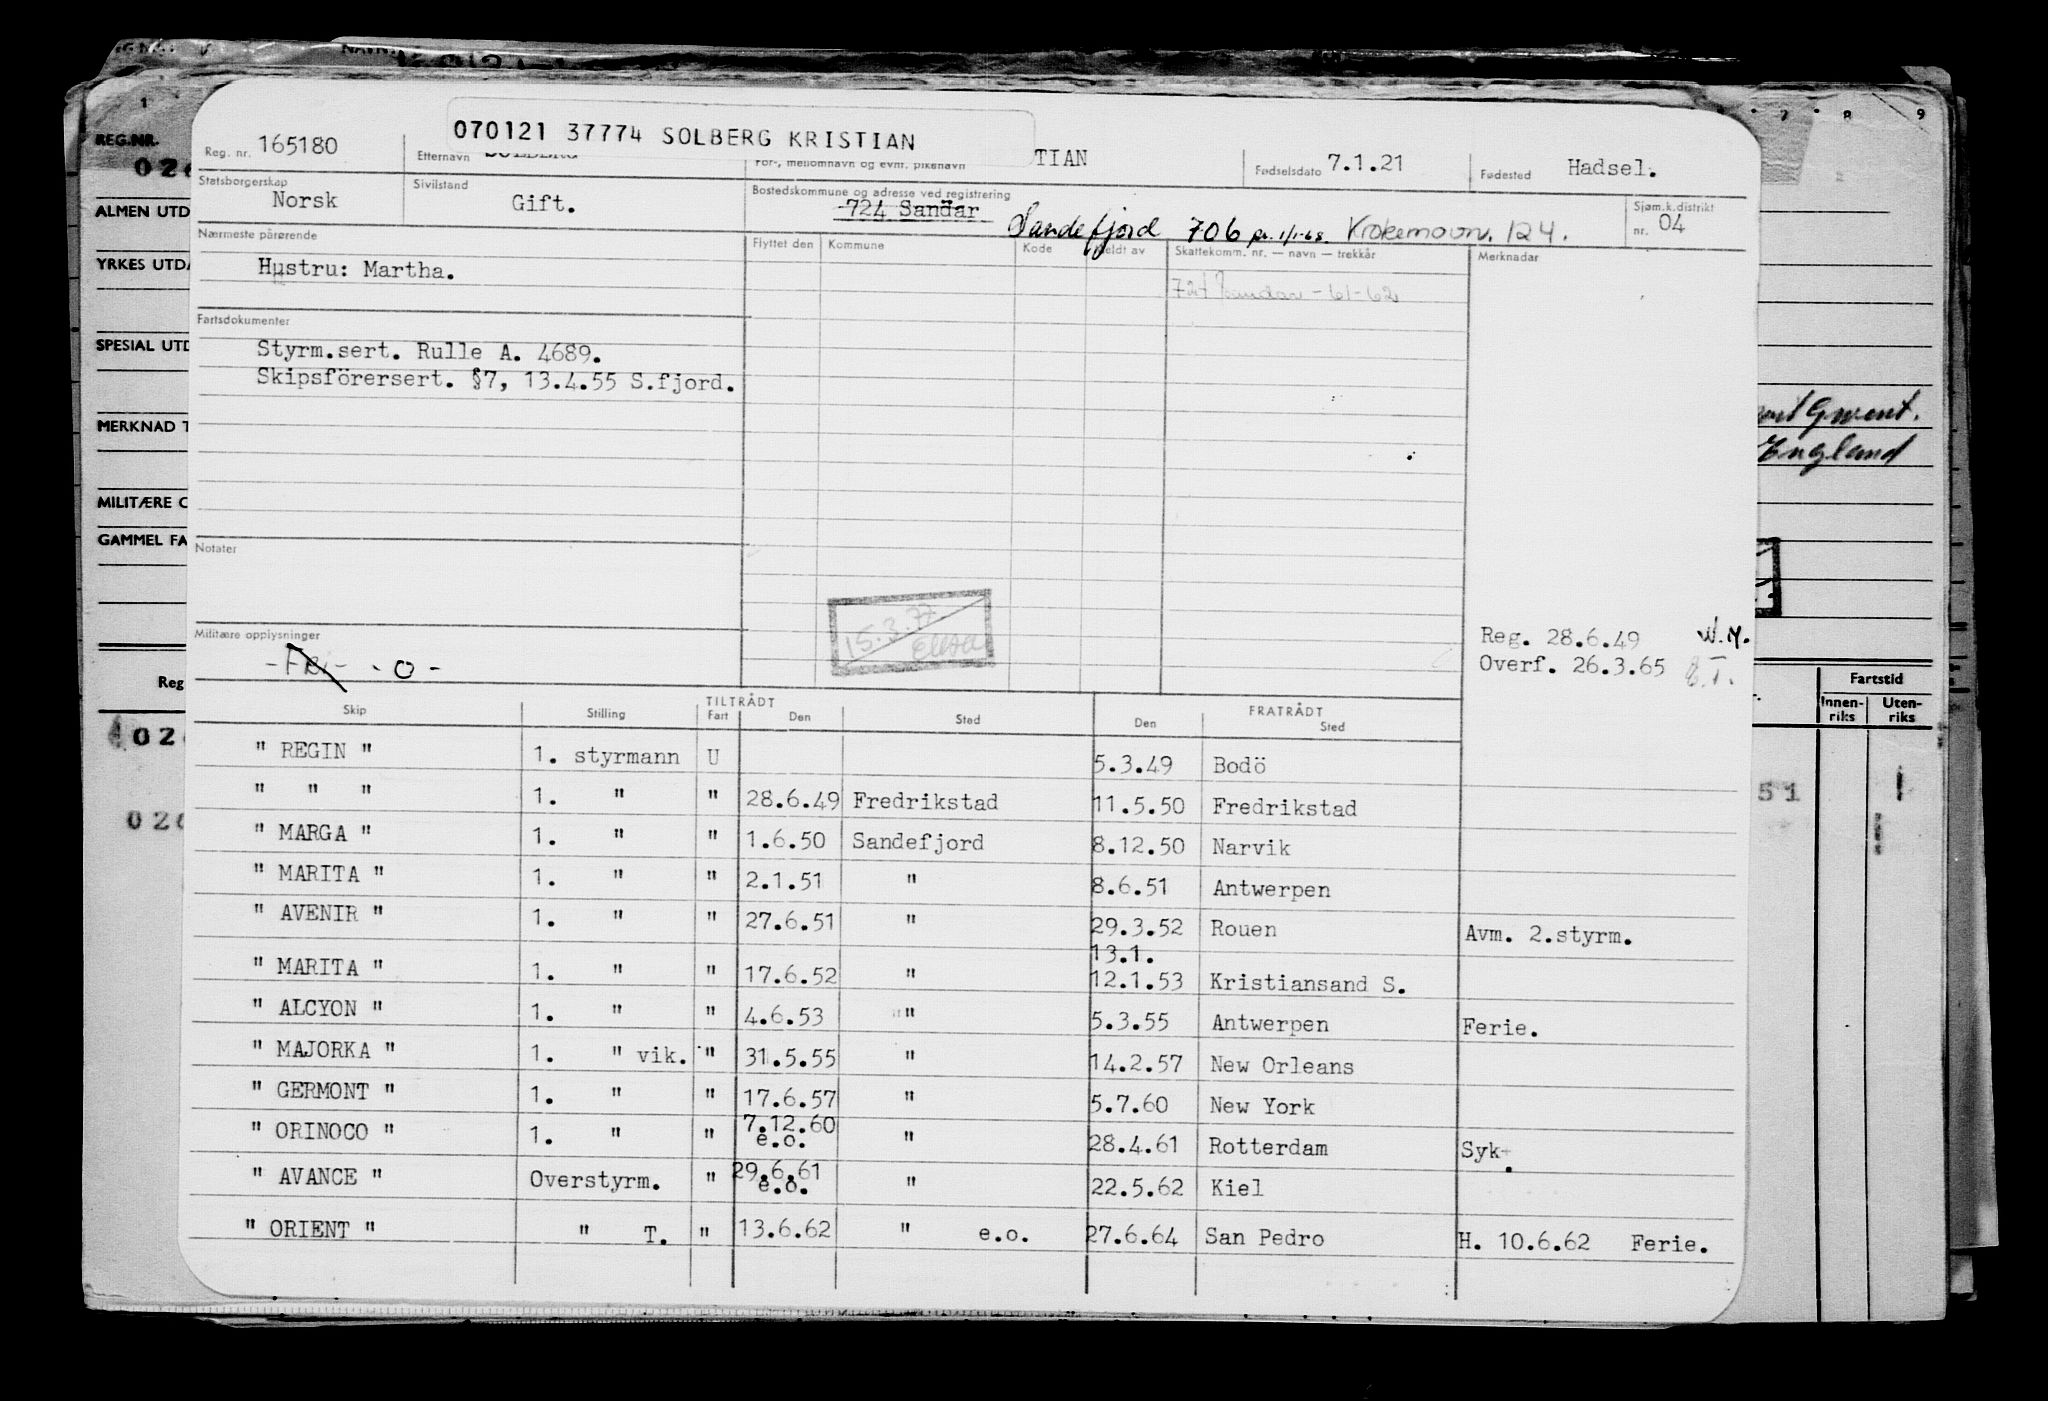 070121 37774 SOLBERG KRISTIAN
Reg. nr. 165180 Etternavn SOLBERG For-, mellomnavn og evnt. pikenavn TIAN Fødselsdato 7.1.21 Fødested Hadsel.
Statsborgerskap Norsk Sivilstand Gift. Bostedskommune og adresse ved registrering 724 Sandar Sandefjord 706 pr. 1/1-68. Krokemovn. 124. Sjøm.k.distrikt nr. 04
Nærmeste pårørende Flyttet den Kommune Kode Meldt av Skattekomm. nr. — navn — trekkår Merknadar
Hustru: Martha.
724 Sandar - 61-62
Fartsdokumenter
Styrm.sert. Rulle A. 4689.
Skipsförersert. §7, 13.4.55 S.fjord.
Notater
15.3.77
Militære opplysninger
-Fri- -0-
Reg. 28.6.49 W.M.
Overf. 26.3.65
Skip Stilling TILTRÅDT Fart Den Sted FRATRÅDT Den Sted
" REGIN " 1. styrmann U 5.3.49 Bodö
" " " 1. " " 28.6.49 Fredrikstad 11.5.50 Fredrikstad
" MARGA " 1. " " 1.6.50 Sandefjord 8.12.50 Narvik
" MARITA " 1. " " 2.1.51 " 8.6.51 Antwerpen
" AVENIR " 1. " " 27.6.51 " 29.3.52 Rouen Avm. 2.styrm.
13.1.
" MARITA " 1. " " 17.6.52 " 12.1.53 Kristiansand S.
" ALCYON " 1. " " 4.6.53 " 5.3.55 Antwerpen Ferie.
" MAJORKA " 1. " vik. " 31.5.55 " 14.2.57 New Orleans
" GERMONT " 1. " " 17.6.57 " 5.7.60 New York
" ORINOCO " 1. " " 7.12.60 e.o. " 28.4.61 Rotterdam Syk.
" AVANCE " Overstyrm. " 29.6.61 e.o. " 22.5.62 Kiel
" ORIENT " " T. " 13.6.62 " e.o. 27.6.64 San Pedro H. 10.6.62 Ferie.
REG.NR.
ALMEN UTD
YRKES UTDA
SPESIAL UTD
MERKNAD T
MILITÆRE O
GAMMEL FA
Reg
Gwent.
England
Fartstid
Innen-riks Uten-riks
51 1
1 7 8 9